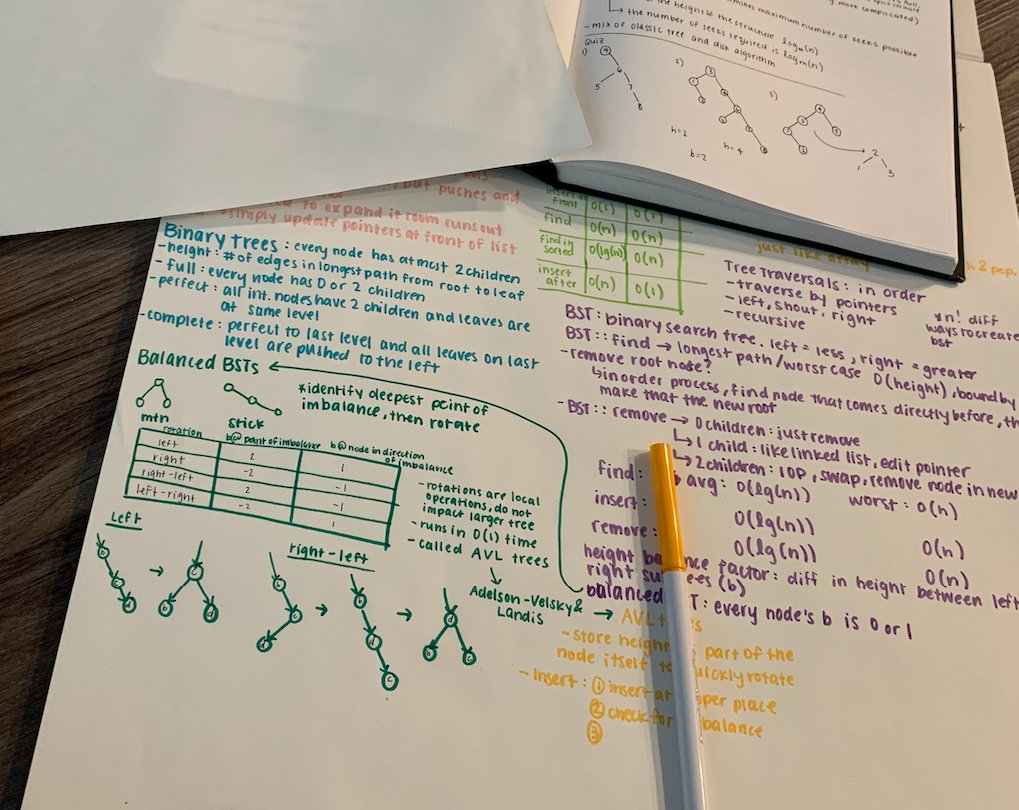 more complicated)
the height of the structure logm(n)
maximum number of seeks possible
↳ the number of seeks required is logm(n)
- mix of classic tree and disk algorithm
Quiz
1)
4
6
5
7
8
2)
3
h=2
b=2
h=4
3)
4
2
1
3
but pushes and
to expand if room runs out
simply update pointers at front of list
Binary trees: every node has at most 2 children
-height: # of edges in longest path from root to leaf
- full: every node has 0 or 2 children
-perfect: all int. nodes have 2 children and leaves are
at same level
-complete: perfect to last level and all leaves on last
level are pushed to the left
Balanced BSTs
*identify deepest point of
imbalance, then rotate
mtn
stick
rotation
b@ point of imbalance
b@ node in direction
of imbalance
left 2 1
right -2 -1
right-left 2 -1
left-right -2 1
-rotations are local
operations, do not
impact larger tree
-runs in O(1) time
-called AVL trees
Adelson-Velsky &
Landis
Left
→
b
d
right-left
d
→
b
d
c
→
d
b
c
insert at
front O(1) O(1)
find O(n) O(n)
find in
sorted O(lg(n)) O(n)
insert
after O(n) O(1)
just like array
& pop.
Tree Traversals: in order
-traverse by pointers
- left, shout, right
- recursive
*n! diff
ways to create
bst
BST: binary search tree. left = less, right = greater
BST::find → longest path/worst case O(height), bound by
-remove root node?
↳in order process, find node that comes directly before,
make that the new root
-BST:: remove → 0 children: just remove
↳ 1 child: like linked list, edit pointer
↳ 2 children: IOP, swap, remove node in new
find: avg: O(lg(n)) worst: O(n)
insert: O(lg(n)) O(n)
remove: O(lg(n)) O(n)
height factor: diff in height between left
right (b)
balanced T: every node's b is 0 or 1
→ AVL
-store height part of the
node itself rotate
- Insert: ① insert at place
② check for balance
③